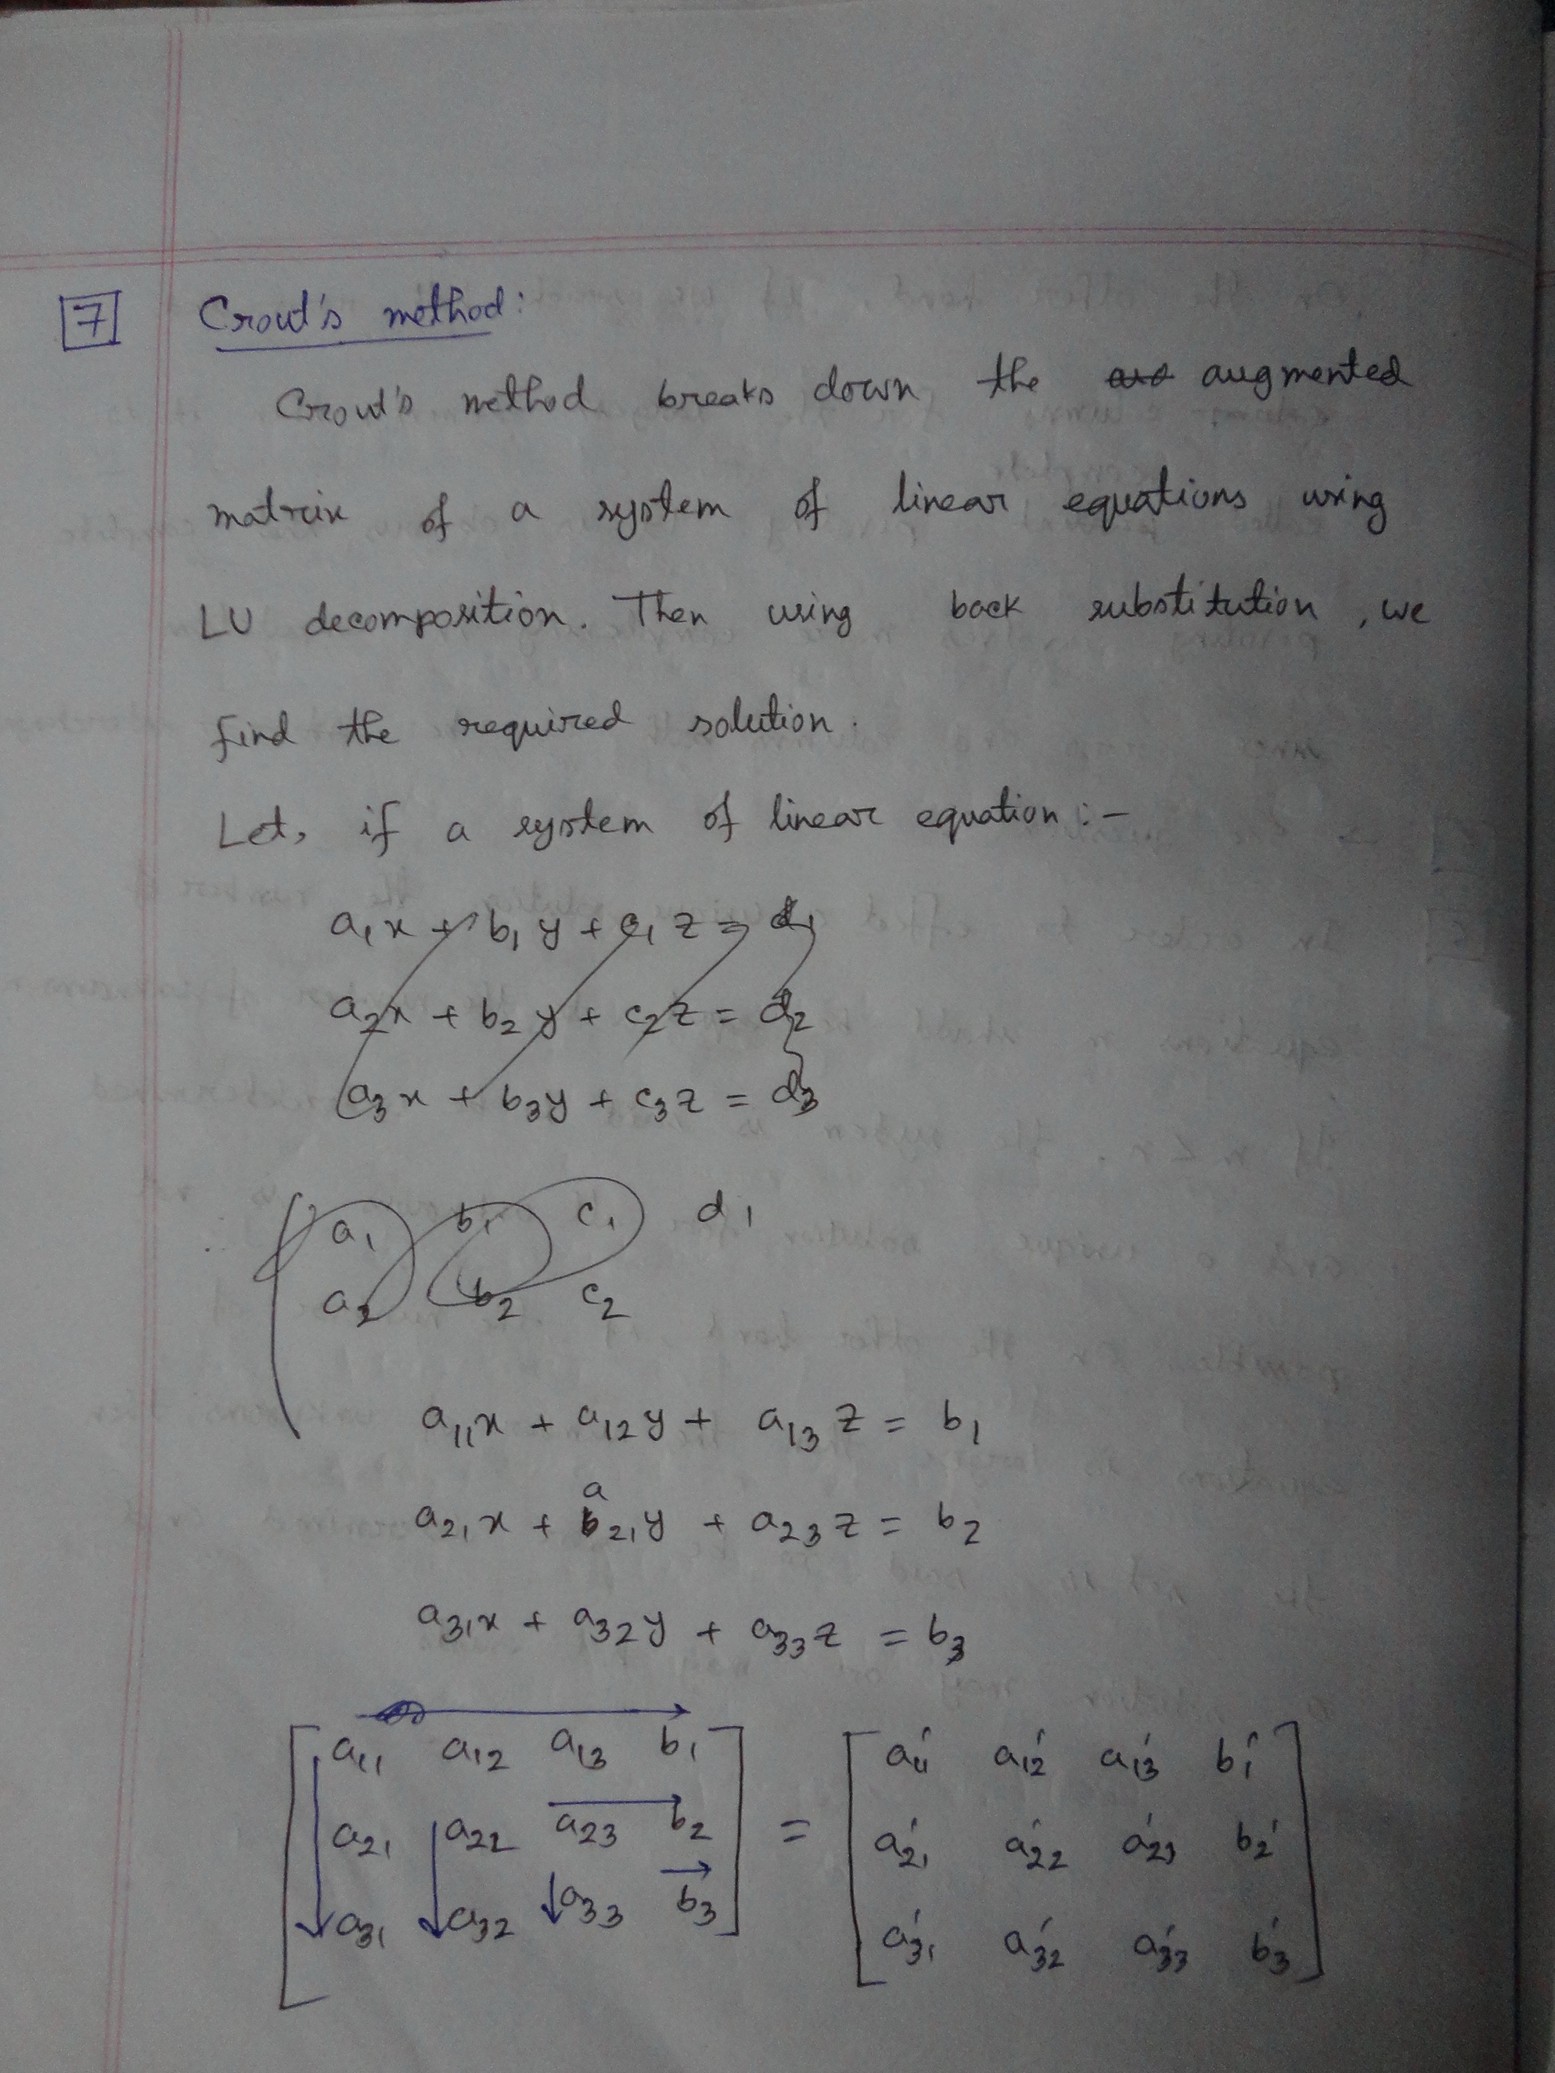 7 Crout's method:
Crout's method breaks down the aug augmented
matrix of a system of linear equations using
LU decomposition. Then using back substitution, we
find the required solution.
Let, if a system of linear equation :-
a₁x + b₁y + c₁z = d₁
a₂x + b₂y + c₂z = d₂
a₃x + b₃y + c₃z = d₃
a₁ b₁ c₁ d₁
a₂ b₂ c₂
a₁₁x + a₁₂y + a₁₃z = b₁
a
a₂₁x + b₂₁y + a₂₃z = b₂
a₃₁x + a₃₂y + a₃₃z = b₃
[a₁₁ a₁₂ a₁₃ b₁] [a₁₁' a₁₂' a₁₃' b₁']
[a₂₁ a₂₂ a₂₃ b₂] = [a₂₁' a₂₂' a₂₃' b₂']
[a₃₁ a₃₂ a₃₃ b₃] [a₃₁' a₃₂' a₃₃' b₃']